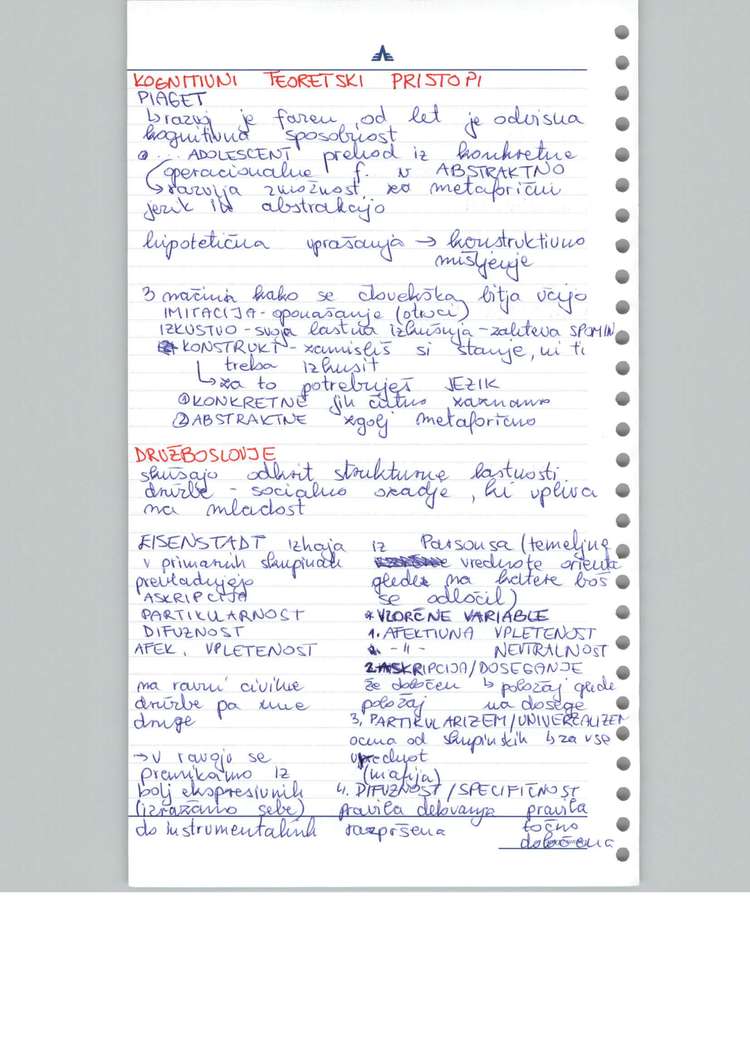 KOGNITIVNI TEORETSKI PRISTOPI
PIAGET
↳ razvoj je fazen, od let je odvisna
kognitivna sposobnost
ADOLESCENT prehod iz konkretne
operacionalne f. v ABSTRAKTNO
→ razvija zmožnost za metaforični
jezik in abstrakcijo
hipotetična vprašanja → konstruktivno
mišljenje
3 načini kako se človeška bitja učijo
IMITACIJA - oponašanje (otroci)
IZKUSTVO - svoja lastna izkušnja - zahteva SPOMIN
KONSTRUKT - zamisliš si stanje, ni ti
treba izkusit
↳ za to potrebuješ JEZIK
① KONKRETNE jih čutno zaznamo
② ABSTRAKTNE zgolj metaforično
DRUŽBOSLOVJE
skušajo odkrit strukturne lastnosti
družbe - socialno ozadje, ki vpliva
na mladost
EISENSTADT izhaja iz Parsonsa (temeljne
v primarnih skupinah
prevladujejo
ASKRIPCIJA
PARTIKULARNOST
DIFUZNOST
AFEK. VPLETENOST
na ravni civilne
družbe pa une
druge
→ v razvoju se
premikamo iz
bolj ekspresivnih
(izražamo sebe)
do instrumentalnih
vrednote orienta
glede na katere boš
se odločil)
* VZORČNE VARIABLE
1. AFEKTIVNA VPLETENOST
- 11 - NEVTRALNOST
2. ASKRIPCIJA/DOSEGANJE
že določen ↳ položaj glede
položaj na dosege
3. PARTIKULARIZEM/UNIVERZALIZEM
ocena od skupinskih ↳ za vse
vrednot
(mafija)
4. DIFUZNOST/SPECIFIČNOST
pravila delovanja pravila
razpršena točno
določena